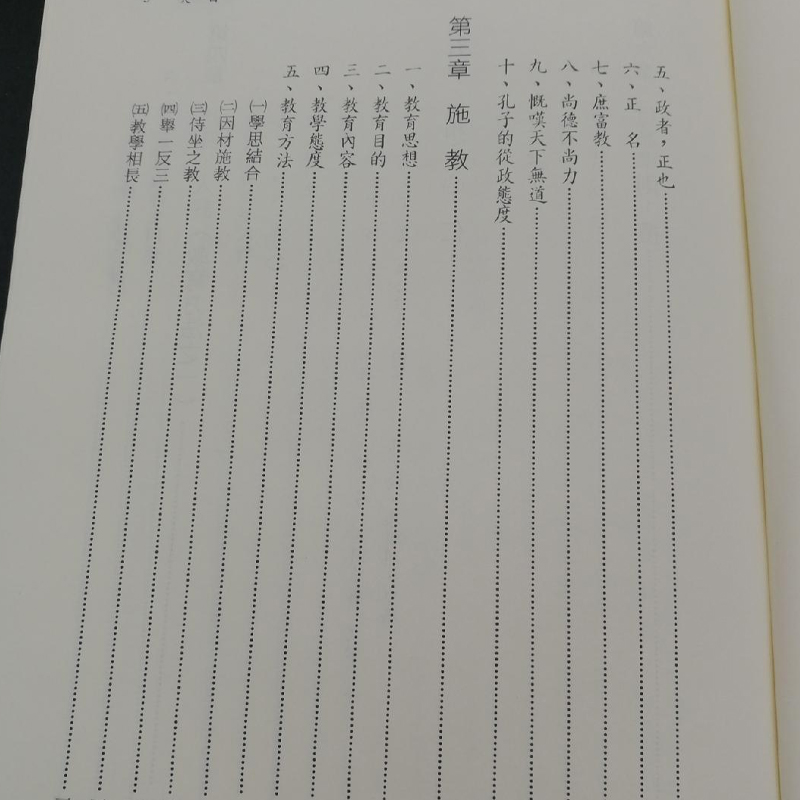 五、政者，正也
六、正　名
七、庶富教
八、尚德不尚力
九、慨嘆天下無道
十、孔子的從政態度
第三章　施　教
一、教育思想
二、教育目的
三、教育內容
四、教學態度
五、教育方法
㈠學思結合
㈡因材施教
㈢侍坐之教
㈣舉一反三
㈤教學相長